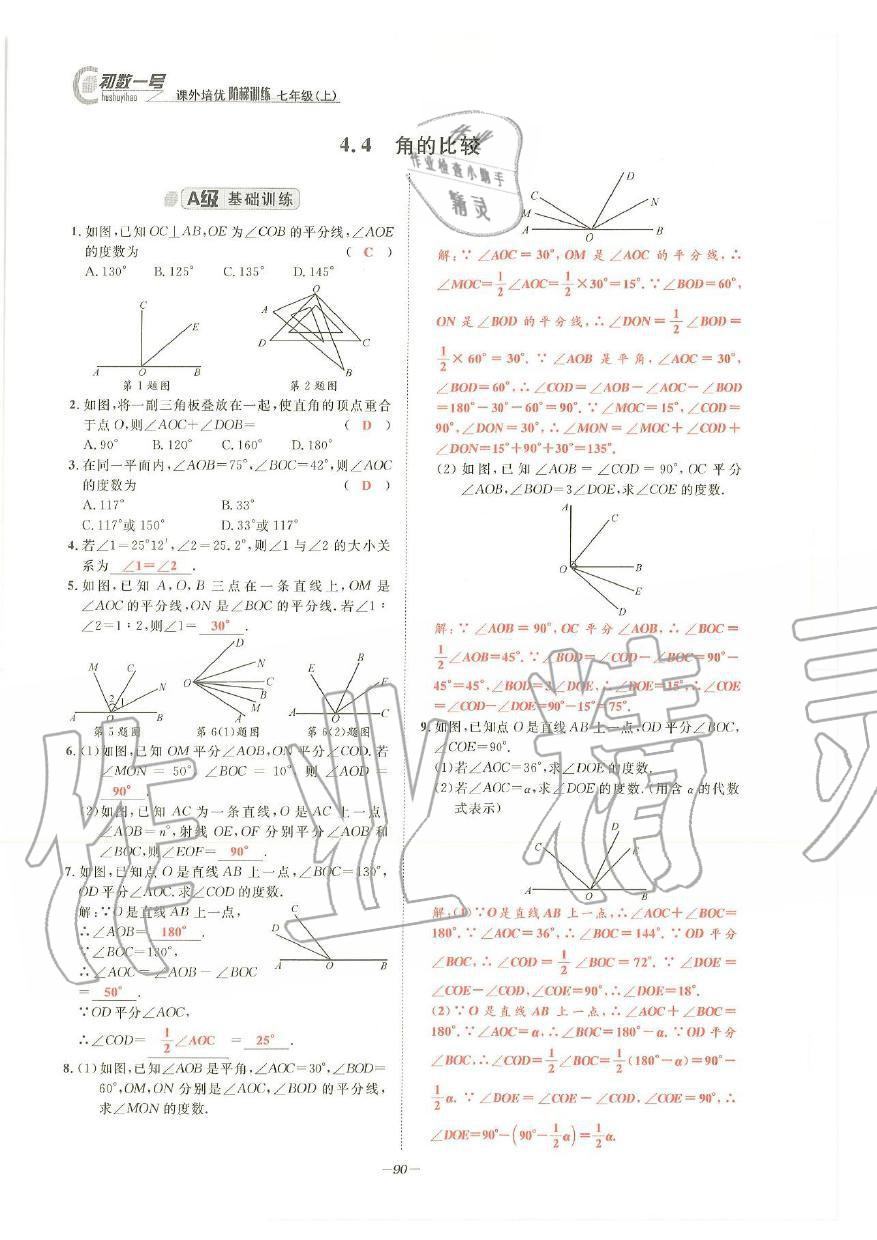 初数一号
chushuyihao
课外培优 阶梯训练 七年级(上)
4.4 角的比较
A级 基础训练
1.如图,已知OC⊥AB,OE为∠COB的平分线,∠AOE
的度数为 ( C )
A.130° B.125° C.135° D.145°
C E A O B
O A D C B
第1题图 第2题图
2.如图,将一副三角板叠放在一起,使直角的顶点重合
于点O,则∠AOC+∠DOB= ( D )
A.90° B.120° C.160° D.180°
3.在同一平面内,∠AOB=75°,∠BOC=42°,则∠AOC
的度数为 ( D )
A.117° B.33°
C.117°或150° D.33°或117°
4.若∠1=25°12′,∠2=25.2°,则∠1与∠2的大小关
系为 ∠1=∠2 .
5.如图,已知 A,O,B 三点在一条直线上,OM 是
∠AOC的平分线,ON是∠BOC的平分线.若∠1∶
∠2=1∶2,则∠1= 30° .
M C N 2 1 A O B
D N C B M A O
E B F A O C
第5题图 第6(1)题图 第6(2)题图
6.(1)如图,已知OM平分∠AOB,ON平分∠COD.若
∠MON = 50° ∠BOC = 10° 则 ∠AOD =
90° .
(2)如图,已知 AC 为一条直线,O是AC上一点
∠AOB=n°,射线 OE,OF 分别平分∠AOB 和
∠BOC,则∠EOF= 90° .
7.如图,已知点O是直线AB上一点,∠BOC=130°,
OD平分∠AOC.求∠COD的度数.
解:∵O是直线AB上一点,
∴∠AOB= 180° .
∵∠BOC=130°,
∴∠AOC=∠AOB-∠BOC
= 50° .
∵OD平分∠AOC,
∴∠COD= 1/2∠AOC = 25° .
C D A O B
8.(1)如图,已知∠AOB是平角,∠AOC=30°,∠BOD=
60°,OM,ON 分别是∠AOC,∠BOD 的平分线,
求∠MON的度数.
D C N M A O B
解:∵ ∠AOC=30°,OM 是 ∠AOC 的平分线,∴
∠MOC=1/2∠AOC=1/2×30°=15°.∵∠BOD=60°,
ON 是 ∠BOD 的平分线,∴∠DON=1/2∠BOD=
1/2×60°=30°.∵ ∠AOB 是平角,∠AOC=30°,
∠BOD=60°,∴∠COD=∠AOB-∠AOC-∠BOD
=180°-30°-60°=90°.∵∠MOC=15°,∠COD=
90°,∠DON=30°,∴∠MON=∠MOC+∠COD+
∠DON=15°+90°+30°=135°.
(2)如图,已知 ∠AOB = ∠COD = 90°,OC 平分
∠AOB,∠BOD=3∠DOE,求∠COE的度数.
A C O B E D
解:∵ ∠AOB=90°,OC 平分 ∠AOB,∴∠BOC=
1/2∠AOB=45°.∵∠BOD=∠COD-∠BOC=90°-
45°=45°,∠BOD=3∠DOE,∴∠DOE=15°,∴∠COE
=∠COD-∠DOE=90°-15°=75°.
9.如图,已知点O是直线AB上一点,OD平分∠BOC,
∠COE=90°.
(1)若∠AOC=36°,求∠DOE的度数.
(2)若∠AOC=α,求∠DOE的度数.(用含α的代数
式表示)
D C E A O B
解:(1)∵O是直线AB上一点,∴∠AOC+∠BOC=
180°.∵∠AOC=36°,∴∠BOC=144°.∵OD平分
∠BOC,∴∠COD=1/2∠BOC=72°.∵∠DOE=
∠COE-∠COD,∠COE=90°,∴∠DOE=18°.
(2)∵O是直线AB上一点,∴∠AOC+∠BOC=
180°.∵∠AOC=α,∴∠BOC=180°-α.∵OD平分
∠BOC,∴∠COD=1/2∠BOC=1/2(180°-α)=90°-
1/2α.∵∠DOE=∠COE-∠COD,∠COE=90°,∴
∠DOE=90°-(90°-1/2α)=1/2α.
—90—
作业检查小助手
精灵
作业精灵